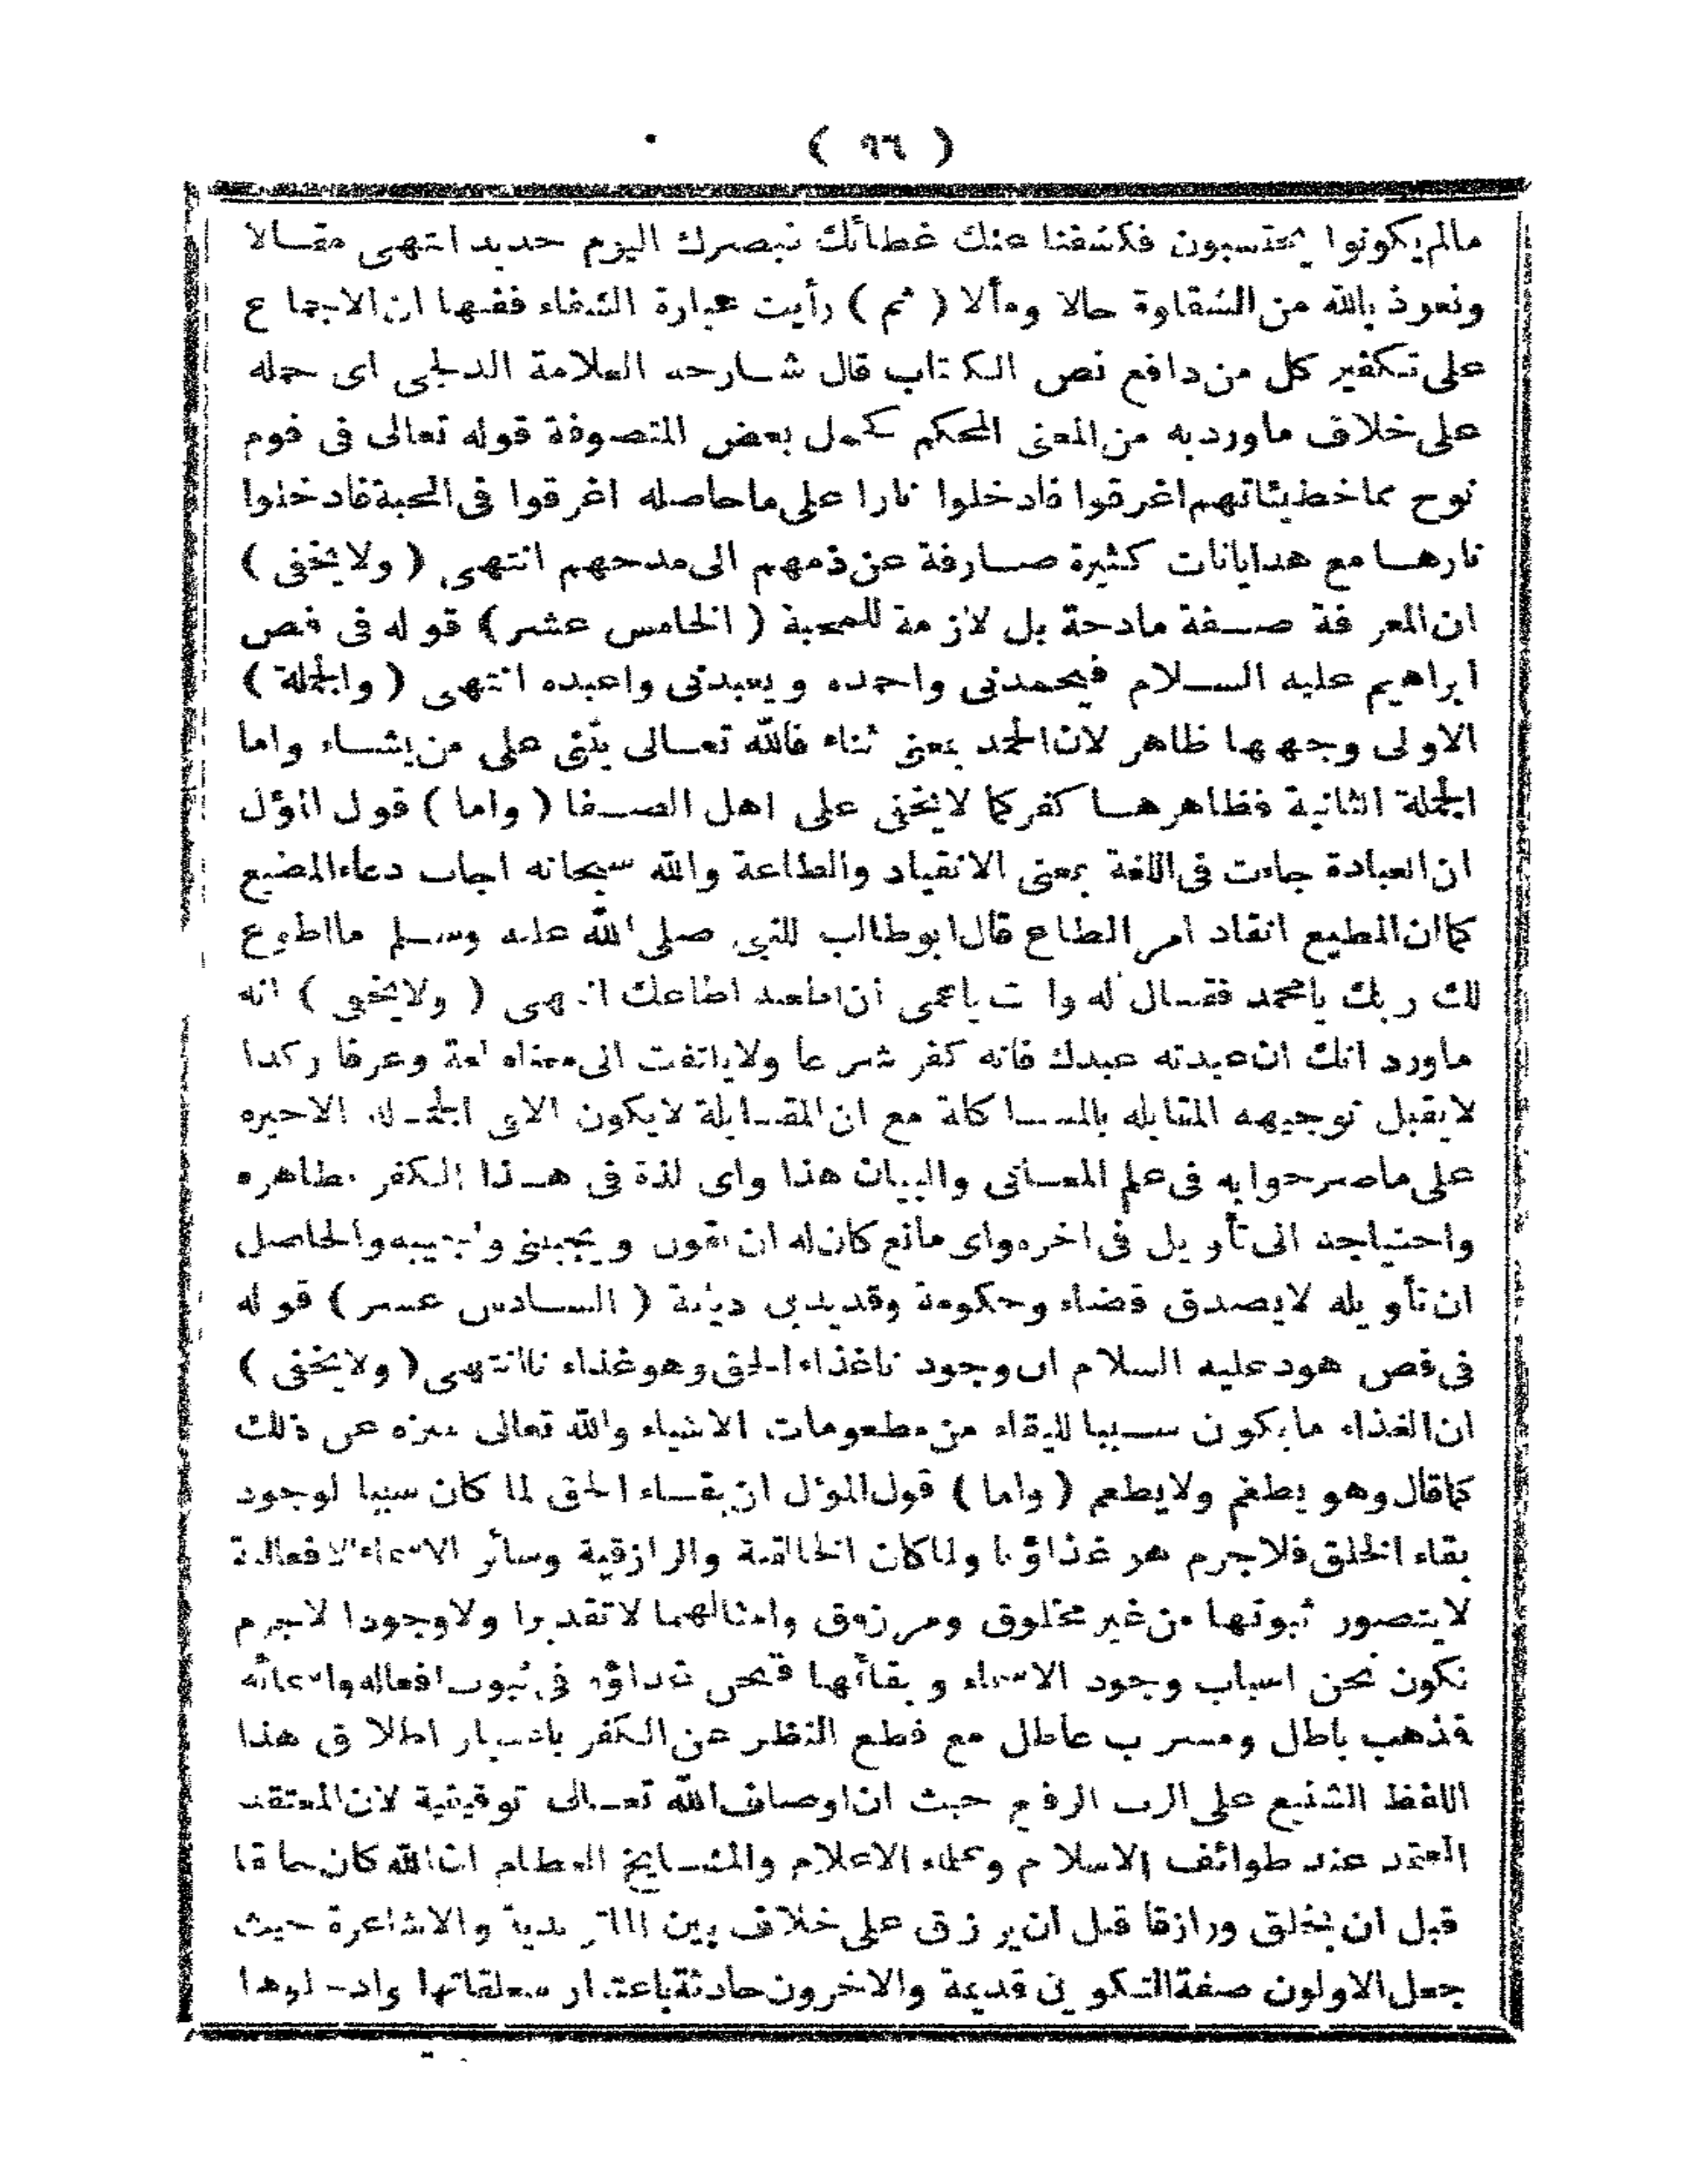 ( ٩٦ )
مالم يكونوا يحتسبون فكشفنا عنك غطائك فبصرك اليوم حديد انتهى مقالا
ونعوذ بالله من الشقاوة حالا ومألا ( ثم ) رأيت عبارة الشفاء ففيها ان الاجماع
على تكفير كل من دافع نص الكتاب قال شارحه العلامة الدلجى اى حمله
على خلاف ماورد به من المعنى المحكم كحمل بعض المتصوفة قوله تعالى فى قوم
نوح مما خطيئاتهم اغرقوا فادخلوا نارا على ما حاصله اغرقوا فى المحبة فادخلوا
نارها مع هدايانات كثيرة صارفة عن ذمهم الى مدحهم انتهى ( ولا يخفى )
ان المعرفة صفة مادحة بل لازمة للمحبة ( الخامس عشر ) قوله فى فص
ابراهيم عليه السلام فيحمدنى واحمده ويعبدنى واعبده انتهى ( والجملة )
الاولى وجهها ظاهر لان الحمد بمعنى ثناء فالله تعالى يثنى على من يشاء واما
الجملة الثانية فظاهرها كفر كما لا يخفى على اهل الصفا ( واما ) قول المؤل
ان العبادة جاءت فى اللغة بمعنى الانقياد والطاعة والله سبحانه اجاب دعاء المطيع
كما ان المطيع انقاد امر المطاع قال ابوطالب للنبى صلى الله عليه وسلم ما اطوع
لك ربك يا محمد فقال له وانت ياعمى ان اطعته اطاعك انتهى ( ولا يخفى ) انه
ماورد انك ان عبدته عبدك فانه كفر شرعا ولا يلتفت الى معناه لغة وعرفا وكذا
لا يقبل توجيهه المقابله بالمشاكلة مع ان المقابلة لا يكون الا فى الجملة الاخيره
على ما صرحوا به فى علم المعانى والبيان هذا واى لذة فى هذا الكفر بظاهره
واحتياجه الى تأويل فى اخره واى مانع كان له ان يقول ويجيبنى واجيبه والحاصل
ان تأويله لا يصدق قضاء وحكومة وقد يدين ديانة ( السادس عشر ) قوله
فى فص هود عليه السلام ان وجود ناغذاء الحق وهو غذاء نا انتهى ( ولا يخفى )
ان الغذاء ما يكون سببا للبقاء من مطعومات الاشياء والله تعالى منزه عن ذلك
كما قال وهو يطعم ولا يطعم ( واما ) قول المؤل ان بقاء الحق لما كان سببا لوجود
بقاء الخلق فلا جرم هو غذاؤنا ولما كان الخالقية والرازقية وسائر الاسماء الافعالية
لا يتصور ثبوتها من غير مخلوق ومرزوق وامثالهما لا تقديرا ولا وجودا لا جرم
نكون نحن اسباب وجود الاسماء وبقائها فنحن غذاؤه فى ثبوت افعاله واسمائه
فذهب باطل ومشرب عاطل مع قطع النظر عن الكفر باعتبار اطلاق هذا
اللفظ الشنيع على الرب الرفيع حيث ان اوصاف الله تعالى توقيفية لان المعتقد
المعتمد عند طوائف الاسلام وعلماء الاعلام والمشايخ العظام ان الله كان خالقا
قبل ان يخلق ورازقا قبل ان يرزق على خلاف بين الماتريدية والاشاعرة حيث
جعل الاولون صفة التكوين قديمة والاخرون حادثة باعتبار تعلقاتها